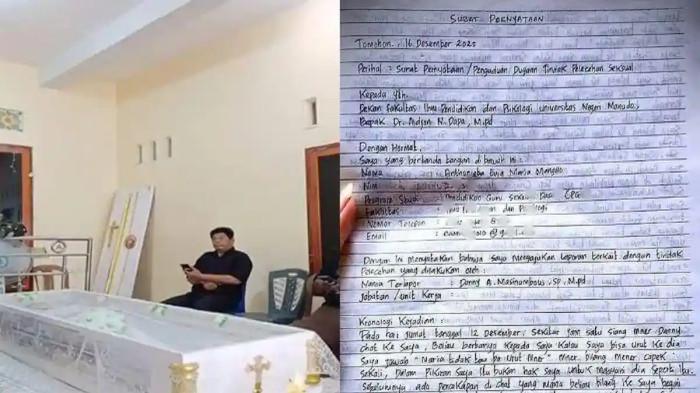 SURAT PERNYATAAN
Tomohon, 16 Desember 2025
Perihal : Surat Pernyataan / Pengaduan Dugaan Tindak Pelecehan Seksual
Kepada Yth.
Dekan Fakultas Ilmu Pendidikan dan Psikologi Universitas Negeri Manado,
Bapak Dr. Aldjon N. Dapa, M.Pd
Dengan Hormat,
Saya yang bertanda tangan di bawah ini :
Nama : Maria
Nim
Program Studi Pendidikan Guru
Fakultas
Nomor Telepon
Email
Dengan ini menyatakan bahwa saya mengajukan laporan terkait dengan tindak
Pelecehan yang dilakukan oleh :
Nama Terlapor : Danny A. Masinambow, SP, M.Pd
Jabatan / Unit Kerja :
Kronologi Kejadian :
Pada hari Jumat tanggal 12 Desember, sekitar jam satu siang mner Danny
chat ke saya, Beliau bertanya kepada saya kalau saya bisa urut ke dia
saya jawab "Maria tidak tau ba urut mner" mner bilang mener capek
sekali, dalam pikiran saya itu bukan hak saya untuk melayani dia seperti itu.
sebelumnya ada percakapan di chat yang mana beliau bilang ke saya begini